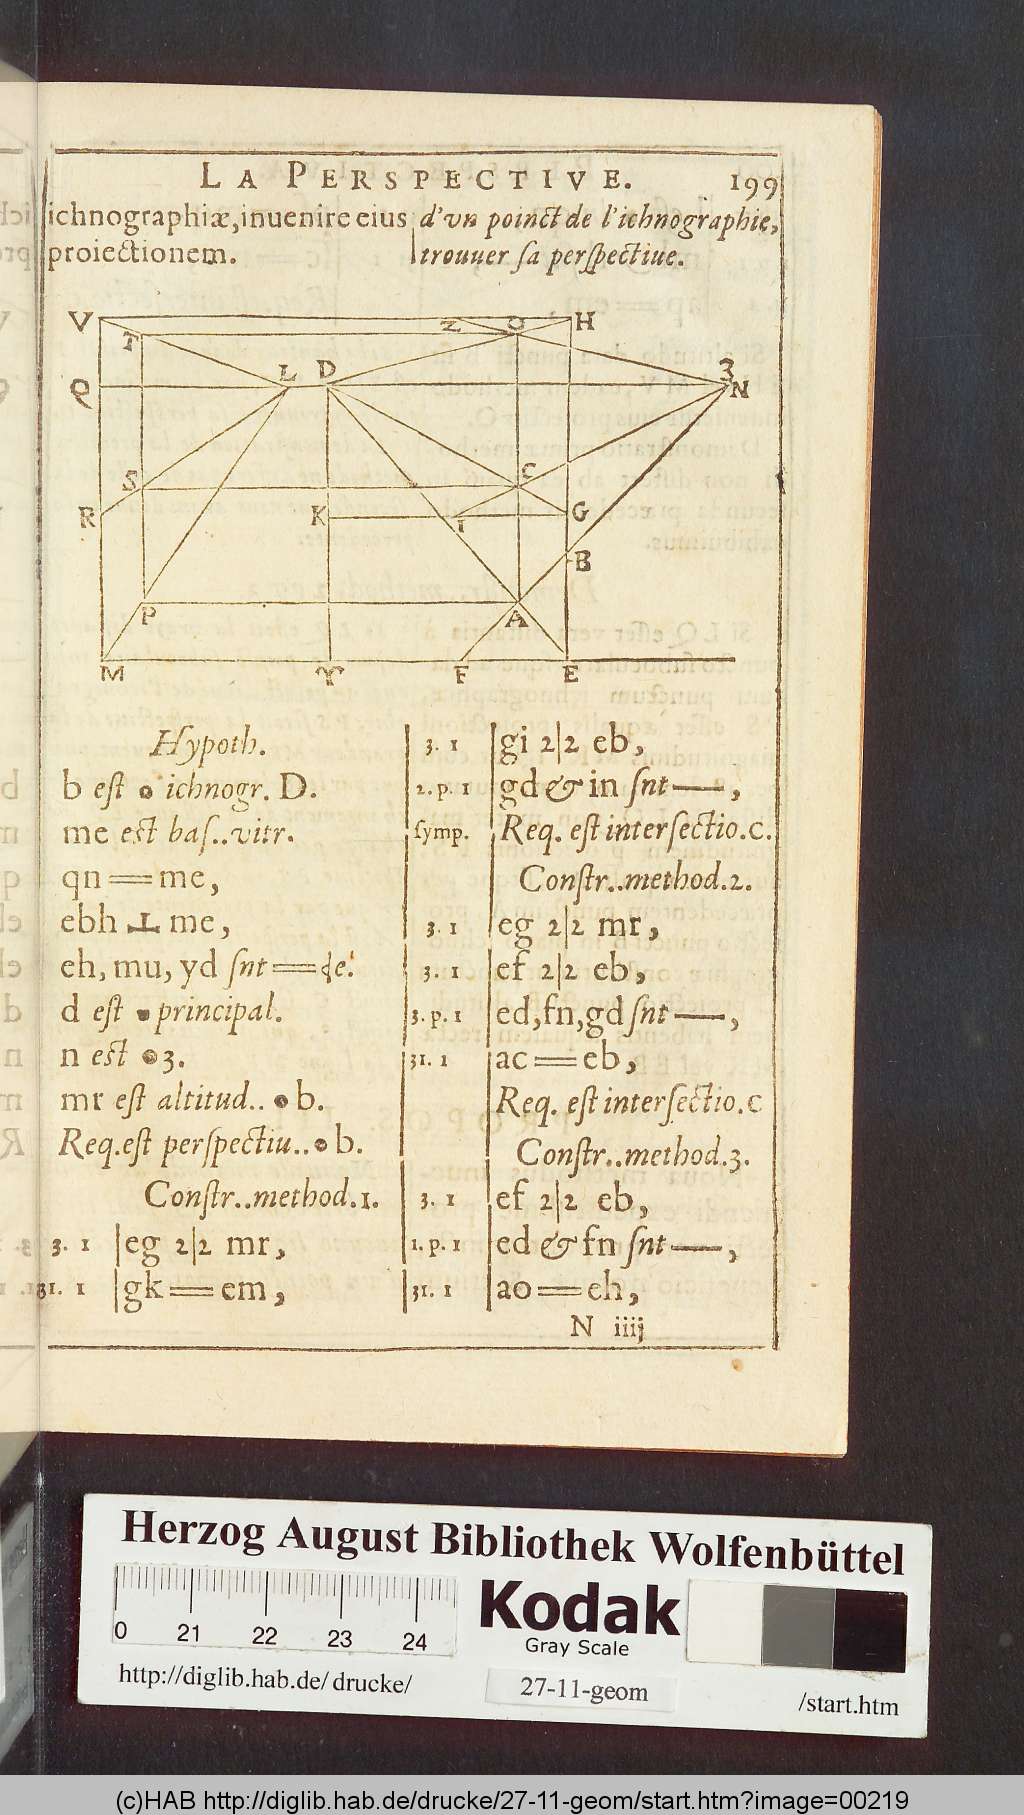 LA PERSPECTIVE. 199
ichnographiæ, inuenire eius
proiectionem.
d'vn poinct de l'ichnographie,
trouuer sa perspectiue.
V T Z O H
Q L D 3 N
S C
R K I G
B
P A
M ♈ F E
Hypoth.
b est • ichnogr. D.
me est bas..vitr.
qn == me,
ebh ⊥ me,
eh, mu, yd snt == de.
d est • principal.
n est • 3.
mr est altitud.. • b.
Req. est perspectiu.. • b.
Constr..method.1.
3. 1 | eg 2|2 mr,
31. 1 | gk == em,
3. 1 | gi 2|2 eb,
2. p. 1 | gd & in snt —,
symp. | Req. est intersectio. c.
Constr..method.2.
3. 1 | eg 2|2 mr,
3. 1 | ef 2|2 eb,
3. p. 1 | ed, fn, gd snt —,
31. 1 | ac == eb,
Req. est intersectio. c
Constr..method.3.
3. 1 | ef 2|2 eb,
1. p. 1 | ed & fn snt —,
31. 1 | ao == eh,
N iiij
Herzog August Bibliothek Wolfenbüttel
0 21 22 23 24
Kodak
Gray Scale
http://diglib.hab.de/ drucke/ 27-11-geom /start.htm
(c)HAB http://diglib.hab.de/drucke/27-11-geom/start.htm?image=00219